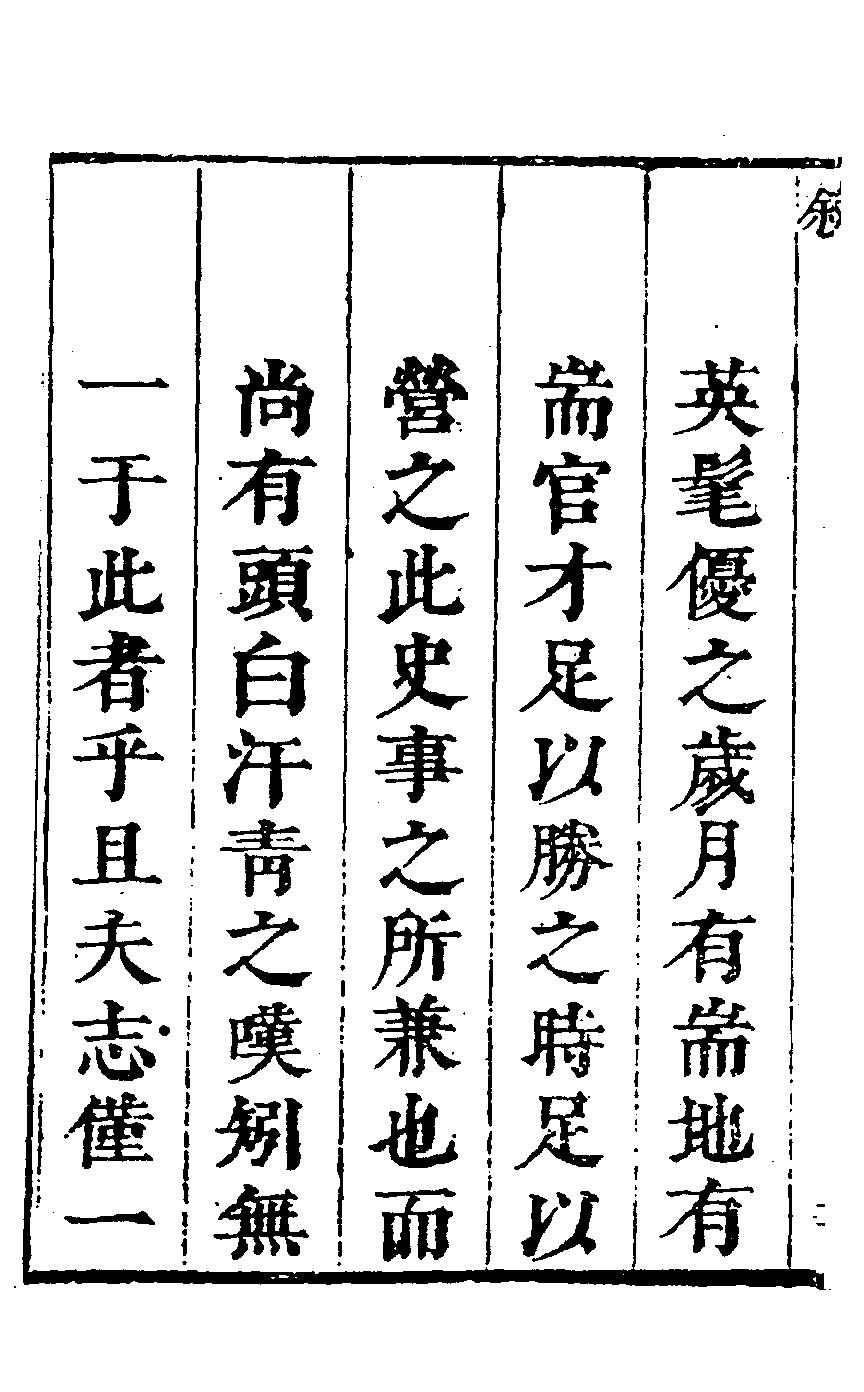 英髦優之歲月有耑地有
耑官才足以勝之時足以
營之此史事之所兼也而
尚有頭白汗青之嘆矧無
一于此者乎且夫志僅一